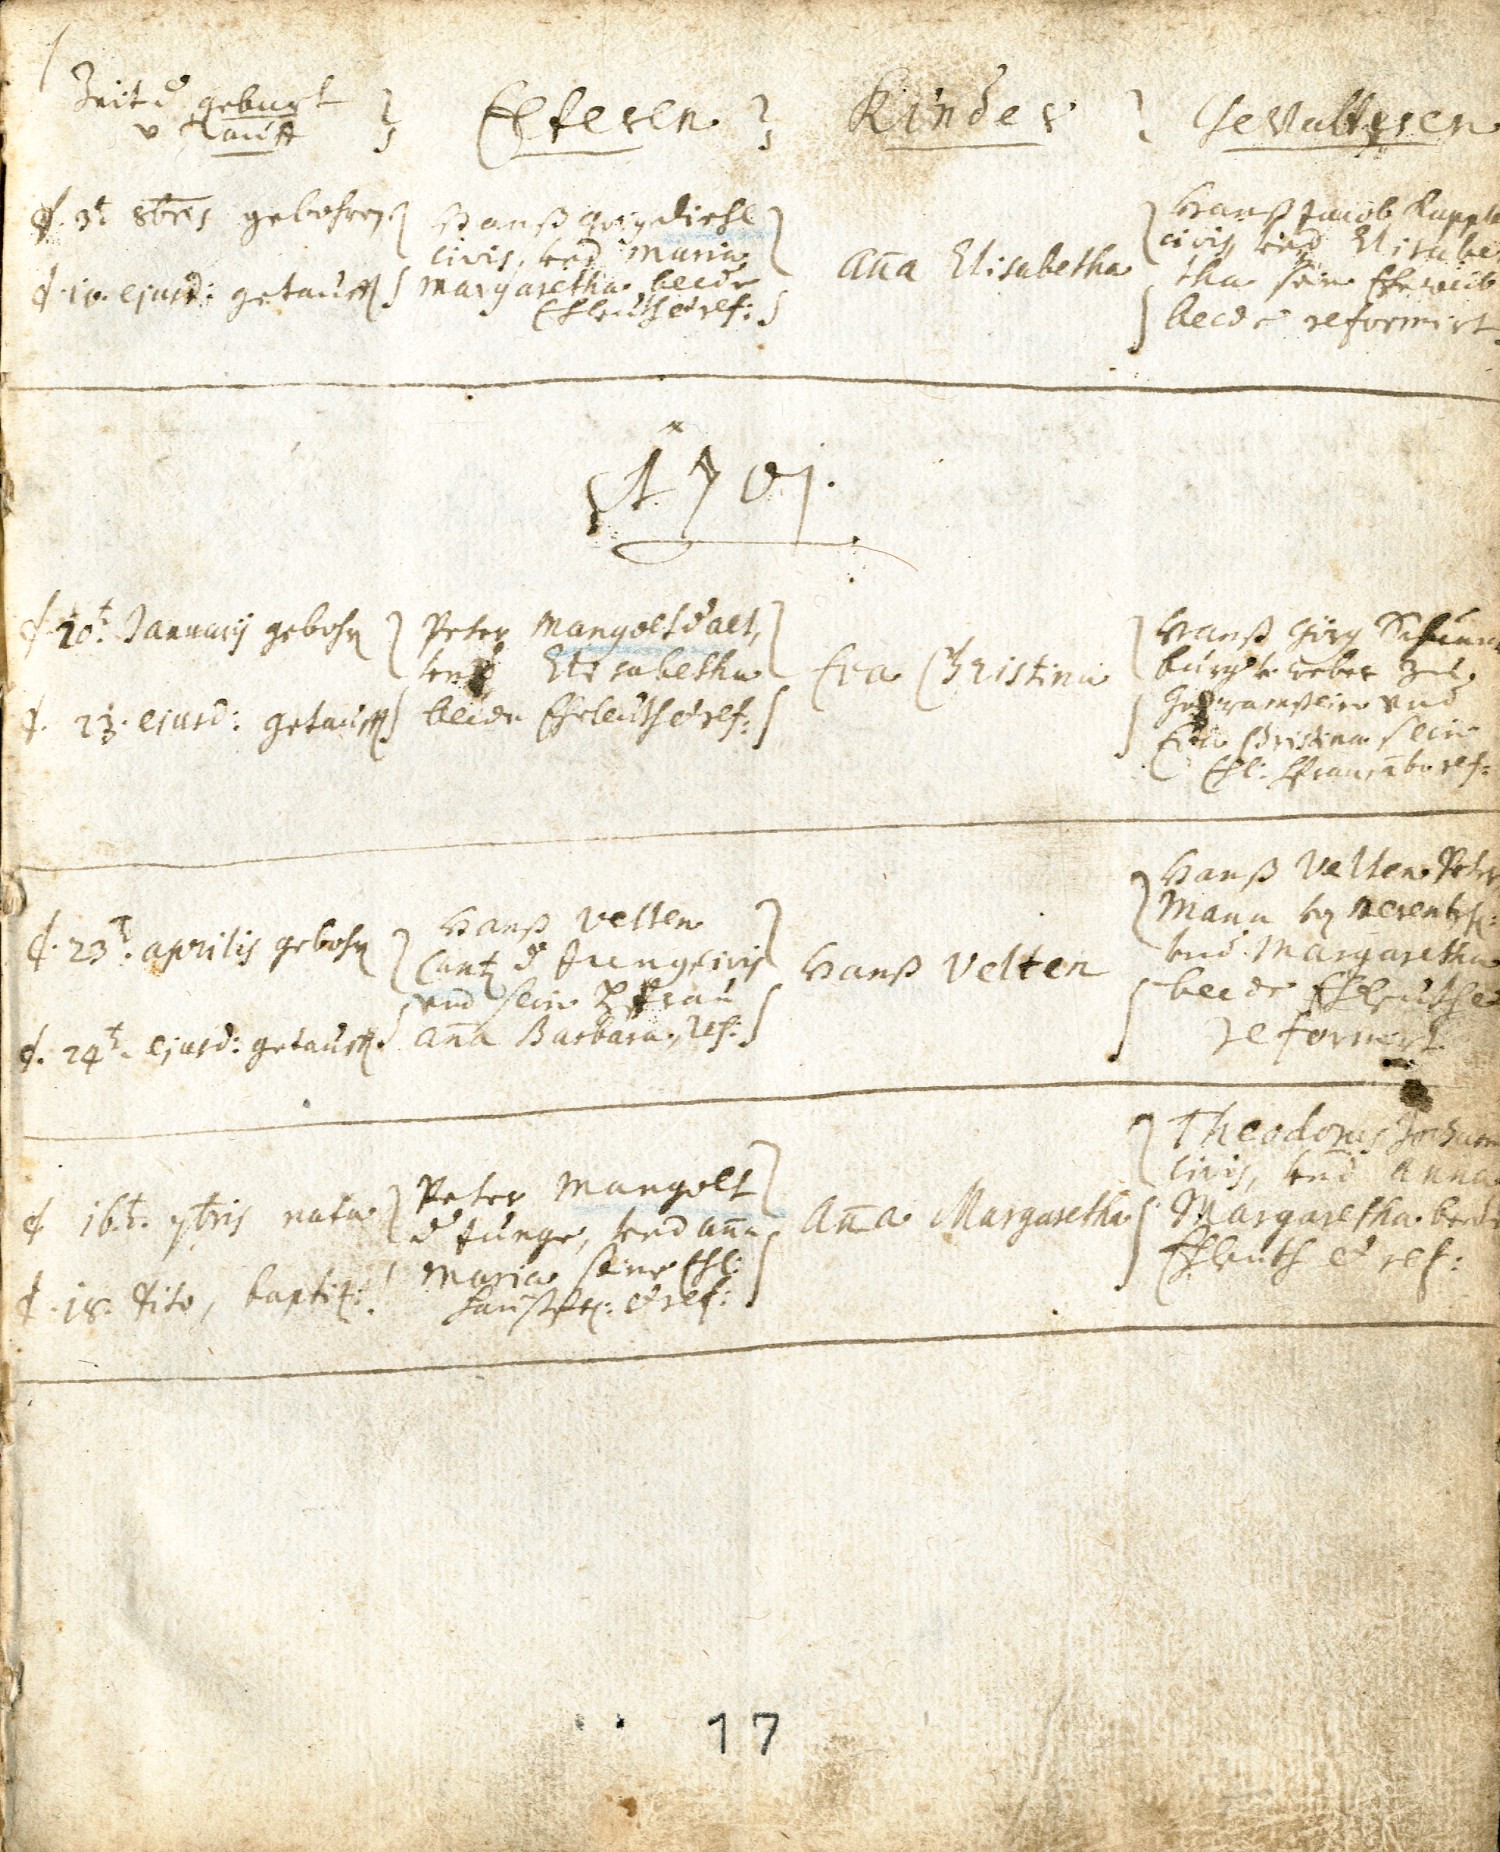 Zeit d. geburt
v Tauff
Elteren
Kinder
Gevatteren
d. 3t 8bris gebohren
d. 10. ejusd: getaufft
Hanß Görg diehl
civis, und Maria
Margaretha beede
Ehleuth et ref:
Anna Elisabetha
Hanß Jacob Rapp
civis und Elisabe
tha sein Eheweib
beede reformirt.
1701.
d. 20t. Januarij gebohrn
d. 23. ejusd: getaufft
Peter Mangolt d alt,
und Elisabetha
beide Eheleuth et ref:
Eva Christina
Hanß Görg
burger weber zu
und
Eva Christina sein
Ehl: Hfrau, ref:
d. 23t. aprilis gebohrn
d. 24t. ejusd: getaufft.
Hanß Velten
Cantz d Jung civis
und seine Hfrau
Anna Barbara, ref:
Hanß Velten
Hanß Velten Peter
Mann
und Margaretha
beede Ehleuth et
reformirt.
d 16t. 7bris nata
d. 18. dito, baptiz:
Peter Mangolt
d Junge, und Anna
Maria seine Ehl:
haußfr: et ref:
Anna Margaretha
Theodorus
civis, und Anna
Margaretha beede
Ehleuth et ref:
17